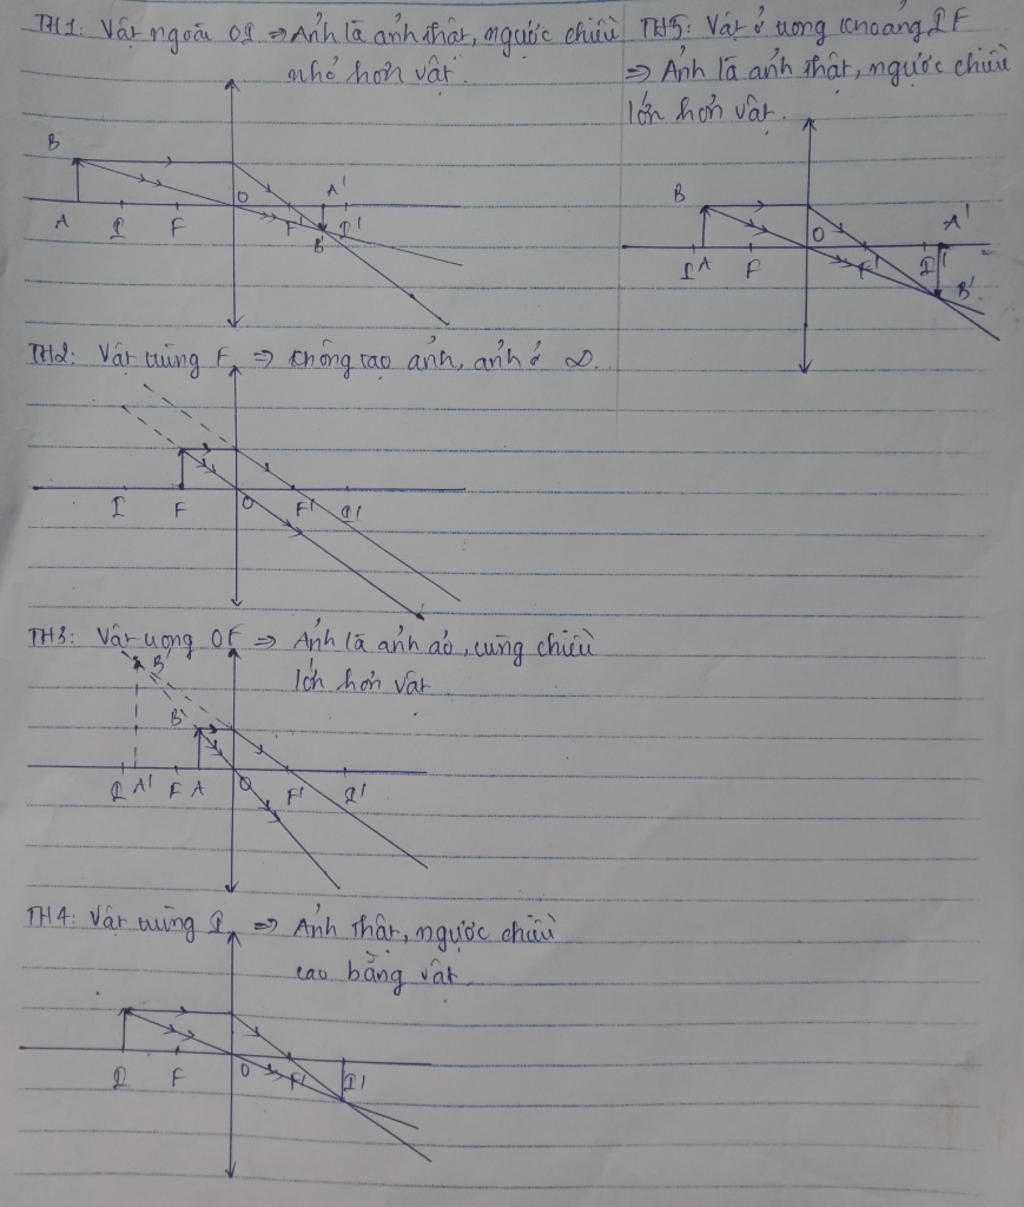 TH1: Vật ngoài OI => Ảnh là ảnh thật, ngược chiều
nhỏ hơn vật.
B
O
A'
A I F F' B' I'
TH5: Vật ở trong khoảng IF
=> Ảnh là ảnh thật, ngược chiều
lớn hơn vật.
B
O
A'
I A F F' I'
B'
TH2: Vật trùng F => không tạo ảnh, ảnh ở ∞.
I F O F' I'
TH3: Vật trong OF => Ảnh là ảnh ảo, cùng chiều
lớn hơn vật
B'
B
I A' F A O F' I'
TH4: Vật trùng I => Ảnh thật, ngược chiều
cao bằng vật.
I F O F' I'